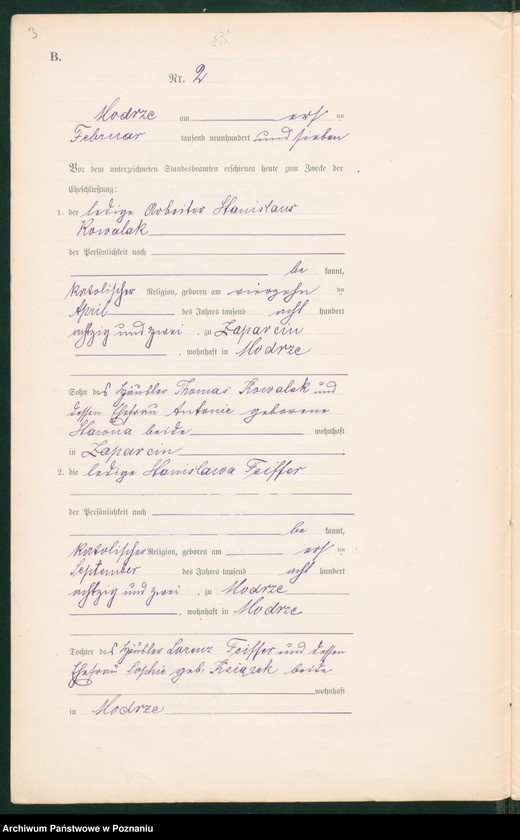 3
B.
Nr. 2
Modrze am erst en
Februar tausend neunhundert und sieben
Vor dem unterzeichneten Standesbeamten erschienen heute zum Zwecke der
Eheschließung:
1. der ledige Arbeiter Stanislaus
Kowalak
der Persönlichkeit nach
be kannt,
katolischer Religion, geboren am vierzehn en
April des Jahres tausend acht hundert
achtzig und zwei, zu Zaparcin
, wohnhaft in Modrze
Sohn des Häusler Thomas Kowalak und
dessen Ehefrau Antonie geborene
beide wohnhaft
in Zaparcin.
2. die ledige Stanislawa Feiffer
der Persönlichkeit nach
be kannt,
katolischer Religion, geboren am erst en
September des Jahres tausend acht hundert
achtzig und zwei, zu Modrze
, wohnhaft in Modrze
Tochter des Häusler Lorenz Feiffer und dessen
Ehefrau Sophie geb. Książek beide
wohnhaft
in Modrze
Archiwum Państwowe w Poznaniu